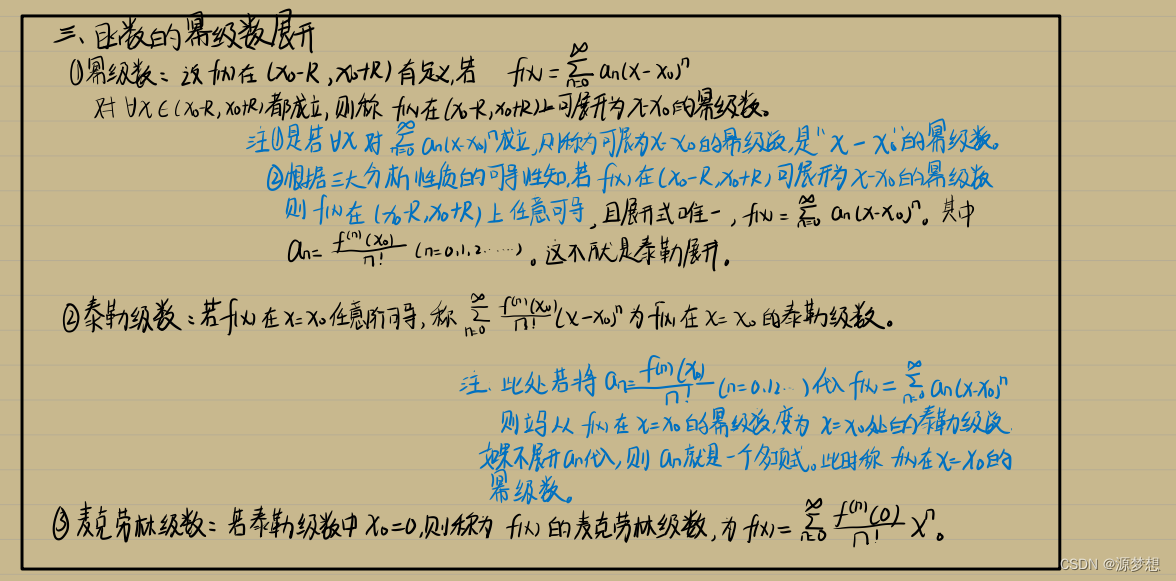 三、函数的幂级数展开
①幂级数：设f(x)在(x₀-R,x₀+R)有定义,若 f(x)=∑_{n=0}^{∞} aₙ(x-x₀)ⁿ
对∀x∈(x₀-R,x₀+R)都成立,则称 f(x)在(x₀-R,x₀+R)上可展开为x-x₀的幂级数。
注①是若∀x对 ∑_{n=0}^{∞} aₙ(x-x₀)ⁿ成立,则称为可展为x-x₀的幂级数,是“x-x₀”的幂级数。
②根据三大分析性质的可导性知,若f(x)在(x₀-R,x₀+R)可展开为x-x₀的幂级数
则f(x)在(x₀-R,x₀+R)上任意可导,且展开式唯一,f(x)=∑_{n=0}^{∞} aₙ(x-x₀)ⁿ。其中
aₙ=f⁽ⁿ⁾(x₀)/n! (n=0,1,2……)。这不就是泰勒展开。
②泰勒级数：若f(x)在x=x₀任意阶可导,称 ∑_{n=0}^{∞} f⁽ⁿ⁾(x₀)/n! (x-x₀)ⁿ为f(x)在x=x₀的泰勒级数。
注.此处若将 aₙ=f⁽ⁿ⁾(x₀)/n! (n=0,1,2…)代入f(x)=∑_{n=0}^{∞} aₙ(x-x₀)ⁿ
则立马从f(x)在x=x₀的幂级数,变为x=x₀处的泰勒级数
如果不展开aₙ代入,则aₙ就是一个多项式。此时称f(x)在x=x₀的
幂级数。
③麦克劳林级数：若泰勒级数中x₀=0,则称为f(x)的麦克劳林级数,为f(x)=∑_{n=0}^{∞} f⁽ⁿ⁾(0)/n! xⁿ。
CSDN @源梦想